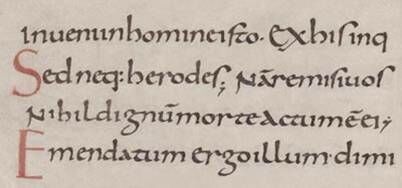 inuenunhomineisto· Exhisinq
Sed neq: herodes; Nāremisiuos
Nihil dignūmorteactumēei;
Emendatum ergoillum·dimi